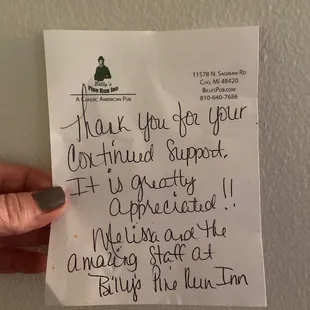 Billy's
Pine Run Inn
A Classic American Pub
11578 N. Saginaw Rd
Clio, MI 48420
BillysPub.com
810-640-7686
Thank You for your
Continued Support.
It is greatly
appreciated!!
Melissa and the
amazing Staff at
Billy's Pine Run Inn